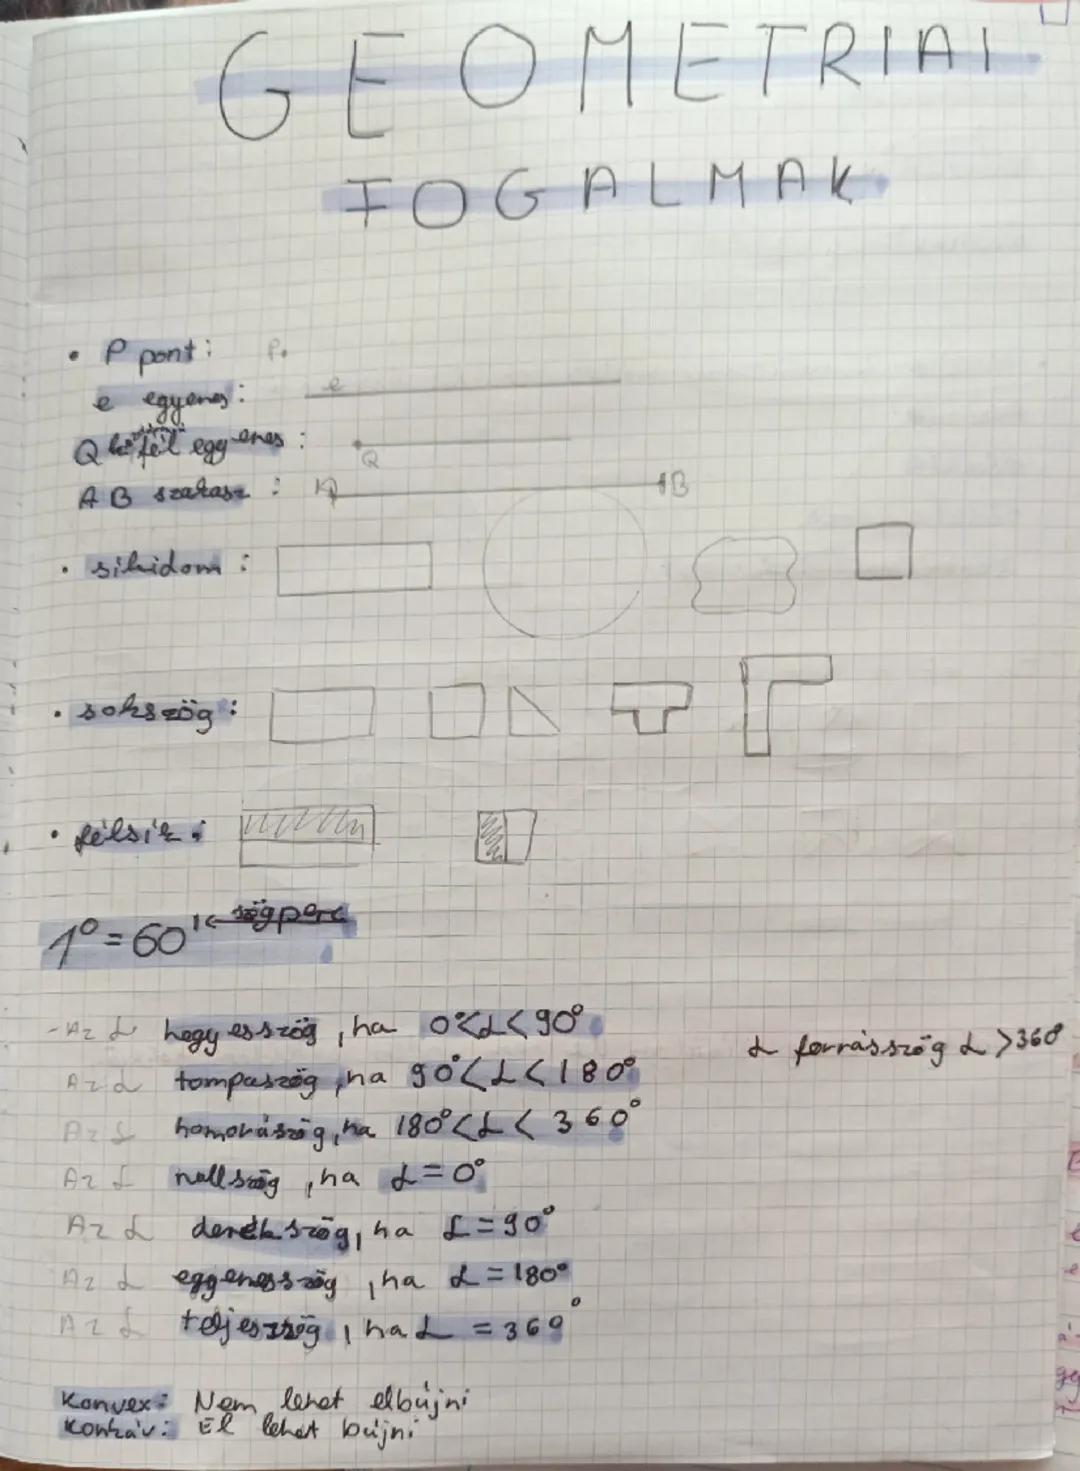 GEOMETRIAI
FOGALMAK
• P pont: P.
e egyenes: e
Q fél egyenes: Q
AB szakasz: A B
• síkidom:
• sokszög:
• félsík:
1° = 60' ← szögperc
- Az α hegyesszög, ha 0°<α<90°
α forrásszög α >360°
Az α tompaszög, ha 90°<α<180°
Az α homorúszög, ha 180°<α< 360°
Az α nullszög, ha α=0°
Az α derékszög, ha α=90°
Az α egyenesszög, ha α=180°
Az α teljesszög, ha α = 360°
Konvex: Nem lehet elbújni
Konkáv: El lehet bújni